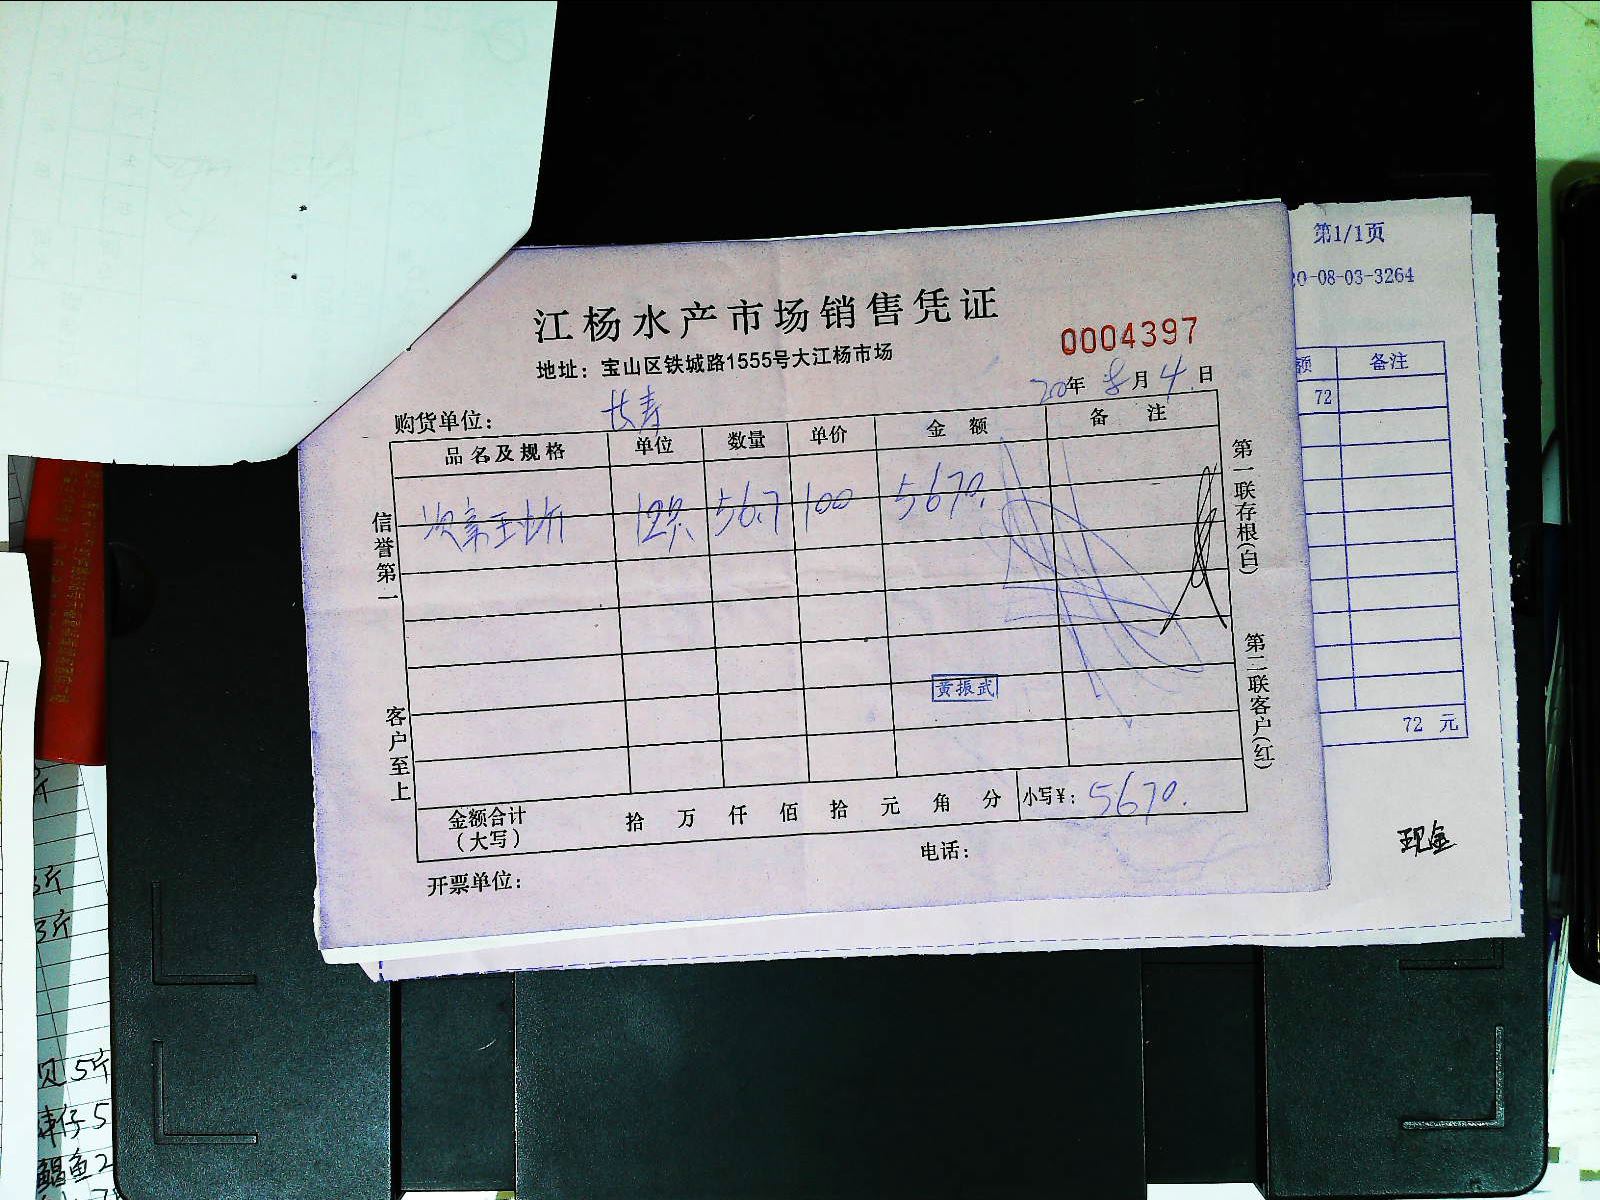 江杨水产市场销售凭证
0004397
地址：宝山区铁城路1555号大江杨市场
20年 8月 4日
购货单位： 长寿
品名及规格 单位 数量 单价 金额 备注
12只 56.7 100 5670.
黄振武
金额合计（大写） 拾 万 仟 佰 拾 元 角 分 小写¥： 5670.
开票单位： 电话：
信誉第一
客户至上
第一联存根(白)
第二联客户(红)
第1/1页
20-08-03-3264
额 备注
72
72 元
现金
斤
3斤
3斤
贝 5斤
仔 5
鲳鱼 2